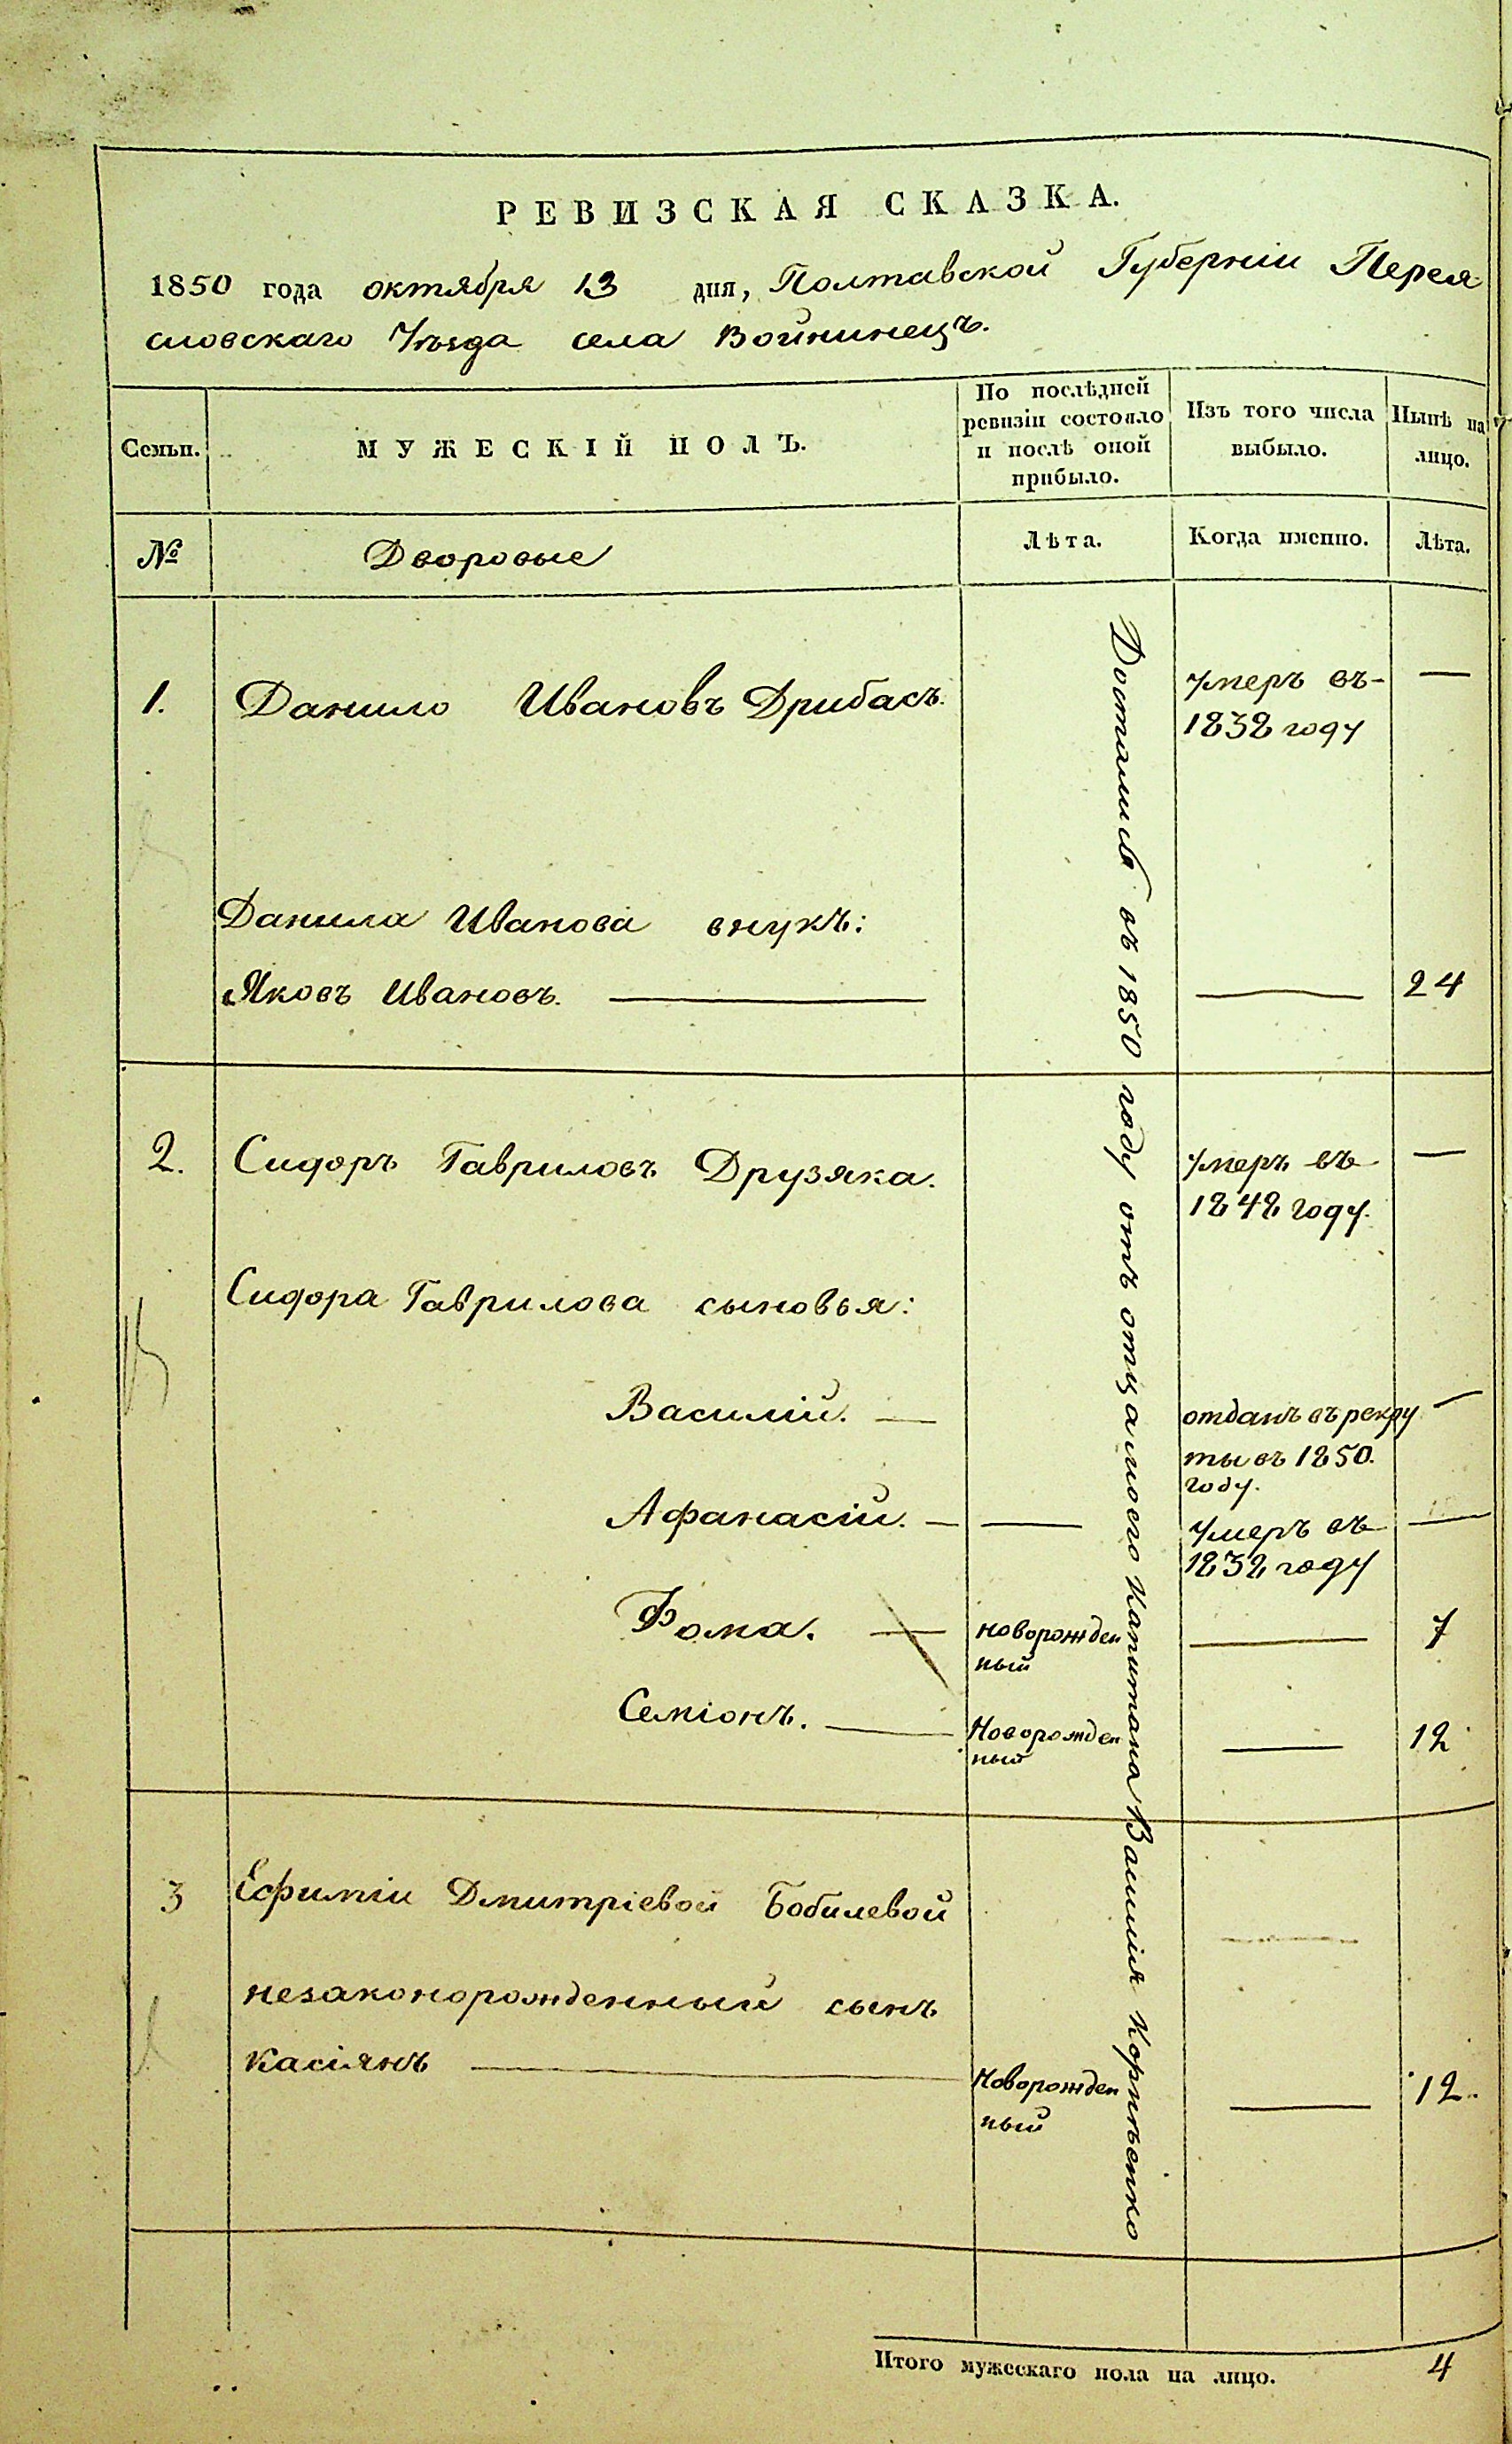 РЕВИЗСКАЯ СКАЗКА.
1850 года октября 13 дня, Полтавской Губерніи Перея
словскаго Уѣзда села Войнинецъ.
Семьи.
МУЖЕСКІЙ ПОЛЪ.
По послѣдней
ревизіи состояло
и послѣ оной
прибыло.
Изъ того числа
выбыло.
Нынѣ на
лицо.
№
Дворовые
Лѣта.
Когда именно.
Лѣта.
1. Данило Ивановъ Дрибасъ. умеръ въ —
1838 году
Данила Иванова внукъ:
Яковъ Ивановъ. — — 24
2. Сидоръ Гавриловъ Друзяка. умеръ въ —
1848 году.
Сидора Гаврилова сыновья:
Василій. — отданъ въ рекру —
ты въ 1850.
году.
Афанасій. — — умеръ въ —
1838 году
Фома. — новорожден — 7
ный
Семіонъ. — Новорожден — 12
ный
3 Ефиміи Дмитріевой Бобилевой
незаконорожденный сынъ
Касіянъ — Новорожден — 12.
ный
Достались въ 1850 году отъ отца моего Капитана Василія Корнѣенко
Итого мужескаго пола на лицо. 4